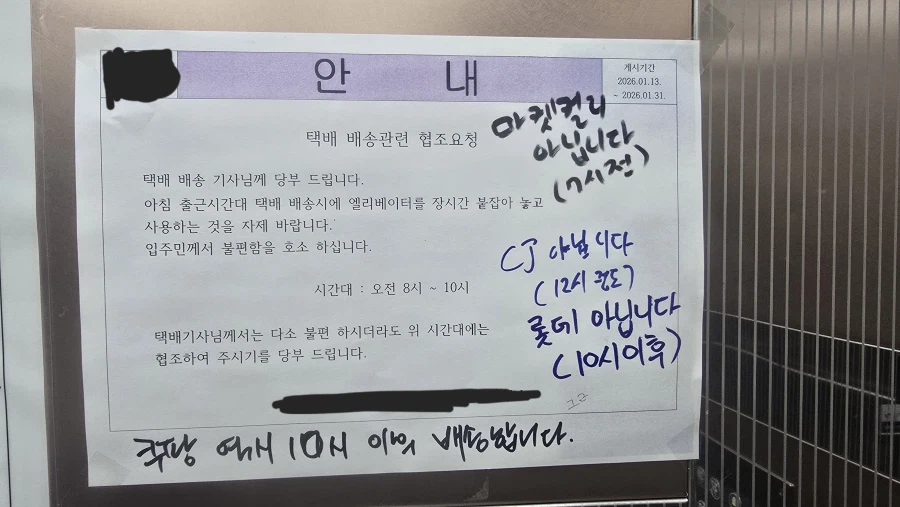 안 내
게시기간
2026.01.13.
~ 2026.01.31.
택배 배송관련 협조요청
마켓컬리
아닙니다
(7시전)
택배 배송 기사님께 당부 드립니다.
아침 출근시간대 택배 배송시에 엘리베이터를 장시간 붙잡아 놓고
사용하는 것을 자제 바랍니다.
입주민께서 불편함을 호소 하십니다.
CJ 아닙니다
(12시 정도)
시간대 : 오전 8시 ~ 10시
롯데 아닙니다
(10시이후)
택배기사님께서는 다소 불편 하시더라도 위 시간대에는
협조하여 주시기를 당부 드립니다.
쿠팡 역시 10시 이후 배송합니다.